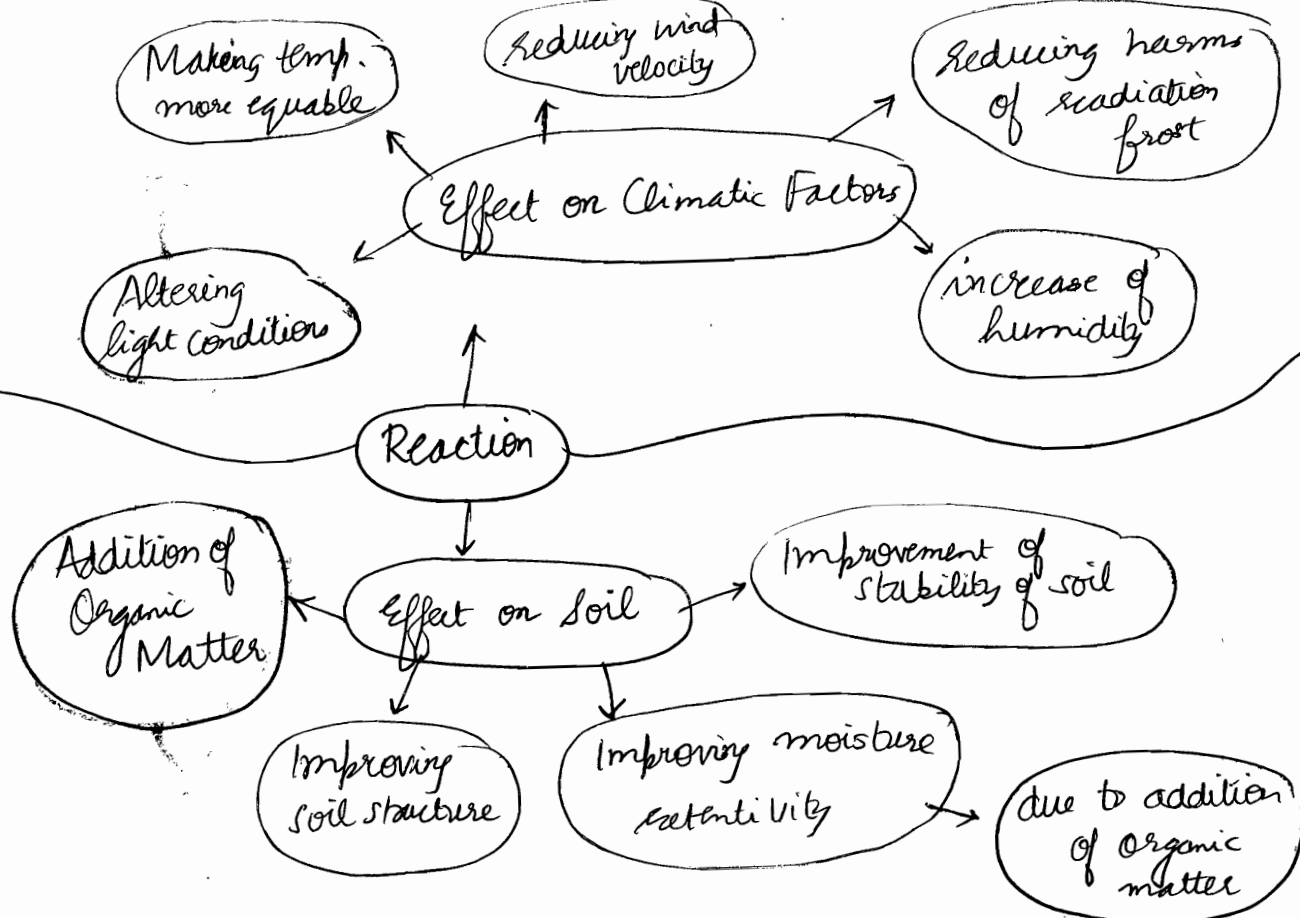 Making temp.
more equable
reducing wind
velocity
reducing harms
of radiation
frost
Effect on Climatic Factors
Altering
light conditions
increase of
humidity
Reaction
Addition of
Organic
Matter
Effect on Soil
Improvement of
stability of soil
Improving
soil structure
Improving moisture
retentivity
due to addition
of organic
matter